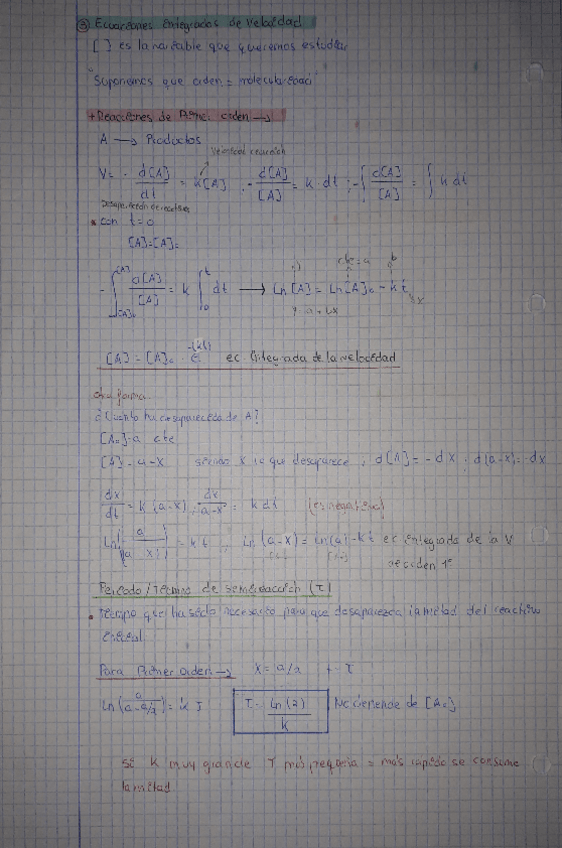 ③ Ecuaciones integradas de velocidad
[ ] es la variable que queremos estudiar
"Suponemos que orden = molecularidad"
+ Reacciones de Primer orden →
A → Productos
velocidad reacción
V = - d[A]/dt = k[A] ; - d[A]/[A] = k dt ; - ∫ d[A]/[A] = ∫ k dt
Desaparición de reactivos
• con t=0
[A]=[A]₀
- ∫ d[A]/[A] = k ∫ dt → Ln[A] = Ln[A]₀ - k t
y = a + bx
[A] = [A]₀ · e^-(kt) ec. integrada de la velocidad
otra forma
¿Cuánto ha desaparecido de A?
[A₀]=a cte
[A] = a-x siendo x lo que desaparece ; d[A] = -dx ; d(a-x) = -dx
dx/dt = k (a-x) ; dx/a-x = k dt (es negativo)
Ln(a/(a-x)) = k t ; Ln(a-x) = Ln(a) - k t ec integrada de la V
de orden 1º
Período/Tiempo de semireacción (τ)
• tiempo que ha sido necesario para que desaparezca la mitad del reactivo
inicial.
Para Primer orden → x = a/2 t = τ
Ln(a/(a-a/2)) = k τ τ = Ln(2)/k No depende de [A₀]
si k muy grande τ más pequeña = más rápido se consume
la mitad